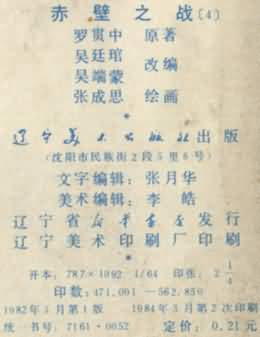 赤壁之战〔4〕
罗贯中 原著
吴廷琯
改编
吴端蒙
张成思 绘画
辽宁美术出版社出版
（沈阳市民族街2段5里6号）
文字编辑：张月华
美术编辑：李皓
辽宁省新华书店发行
辽宁美术印刷厂印刷
开本：787×1092 1/64 印张：2 1/4
印数：471,001—562,850
1982年3月第1版 1984年3月第2次印刷
统一书号：7161·0052 定价：0.21元